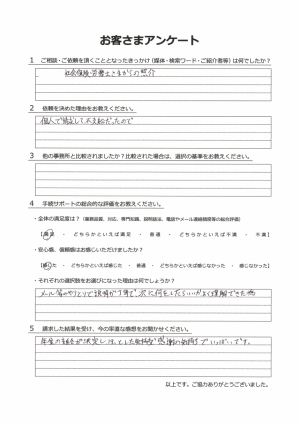 お客さまアンケート
1 ご相談・ご依頼を頂くこととなったきっかけ（媒体・検索ワード・ご紹介者等）は何でしたか？
社会保険労務士さまからの紹介
2 依頼を決めた理由をお教えください。
個人で請求して不支給だったので
3 他の事務所と比較されましたか？比較された場合は、選択の基準をお教えください。
4 手続サポートの総合的な評価をお教えください。
・全体の満足度は？（業務品質、対応、専門知識、説明技法、電話やメール連絡頻度等の総合評価）
【満足 ・ どちらかといえば満足 ・ 普通 ・ どちらかといえば不満 ・ 不満】
・安心感、信頼感はお感じいただけましたか？
【感じた ・ どちらかといえば感じた ・ 普通 ・ どちらかといえば感じなかった ・ 感じなかった】
・それぞれの選択肢をお選びになった理由は何でしょうか？
メール等のやりとりで説明が丁寧で、次に何をしたらいいかよく理解できた為
5 請求した結果を受け、今の率直な感想をお聞かせください。
年金の受給が決定し、ほっとした気持ちと感謝の気持ちでいっぱいです。
以上です。ご協力ありがとうございました。